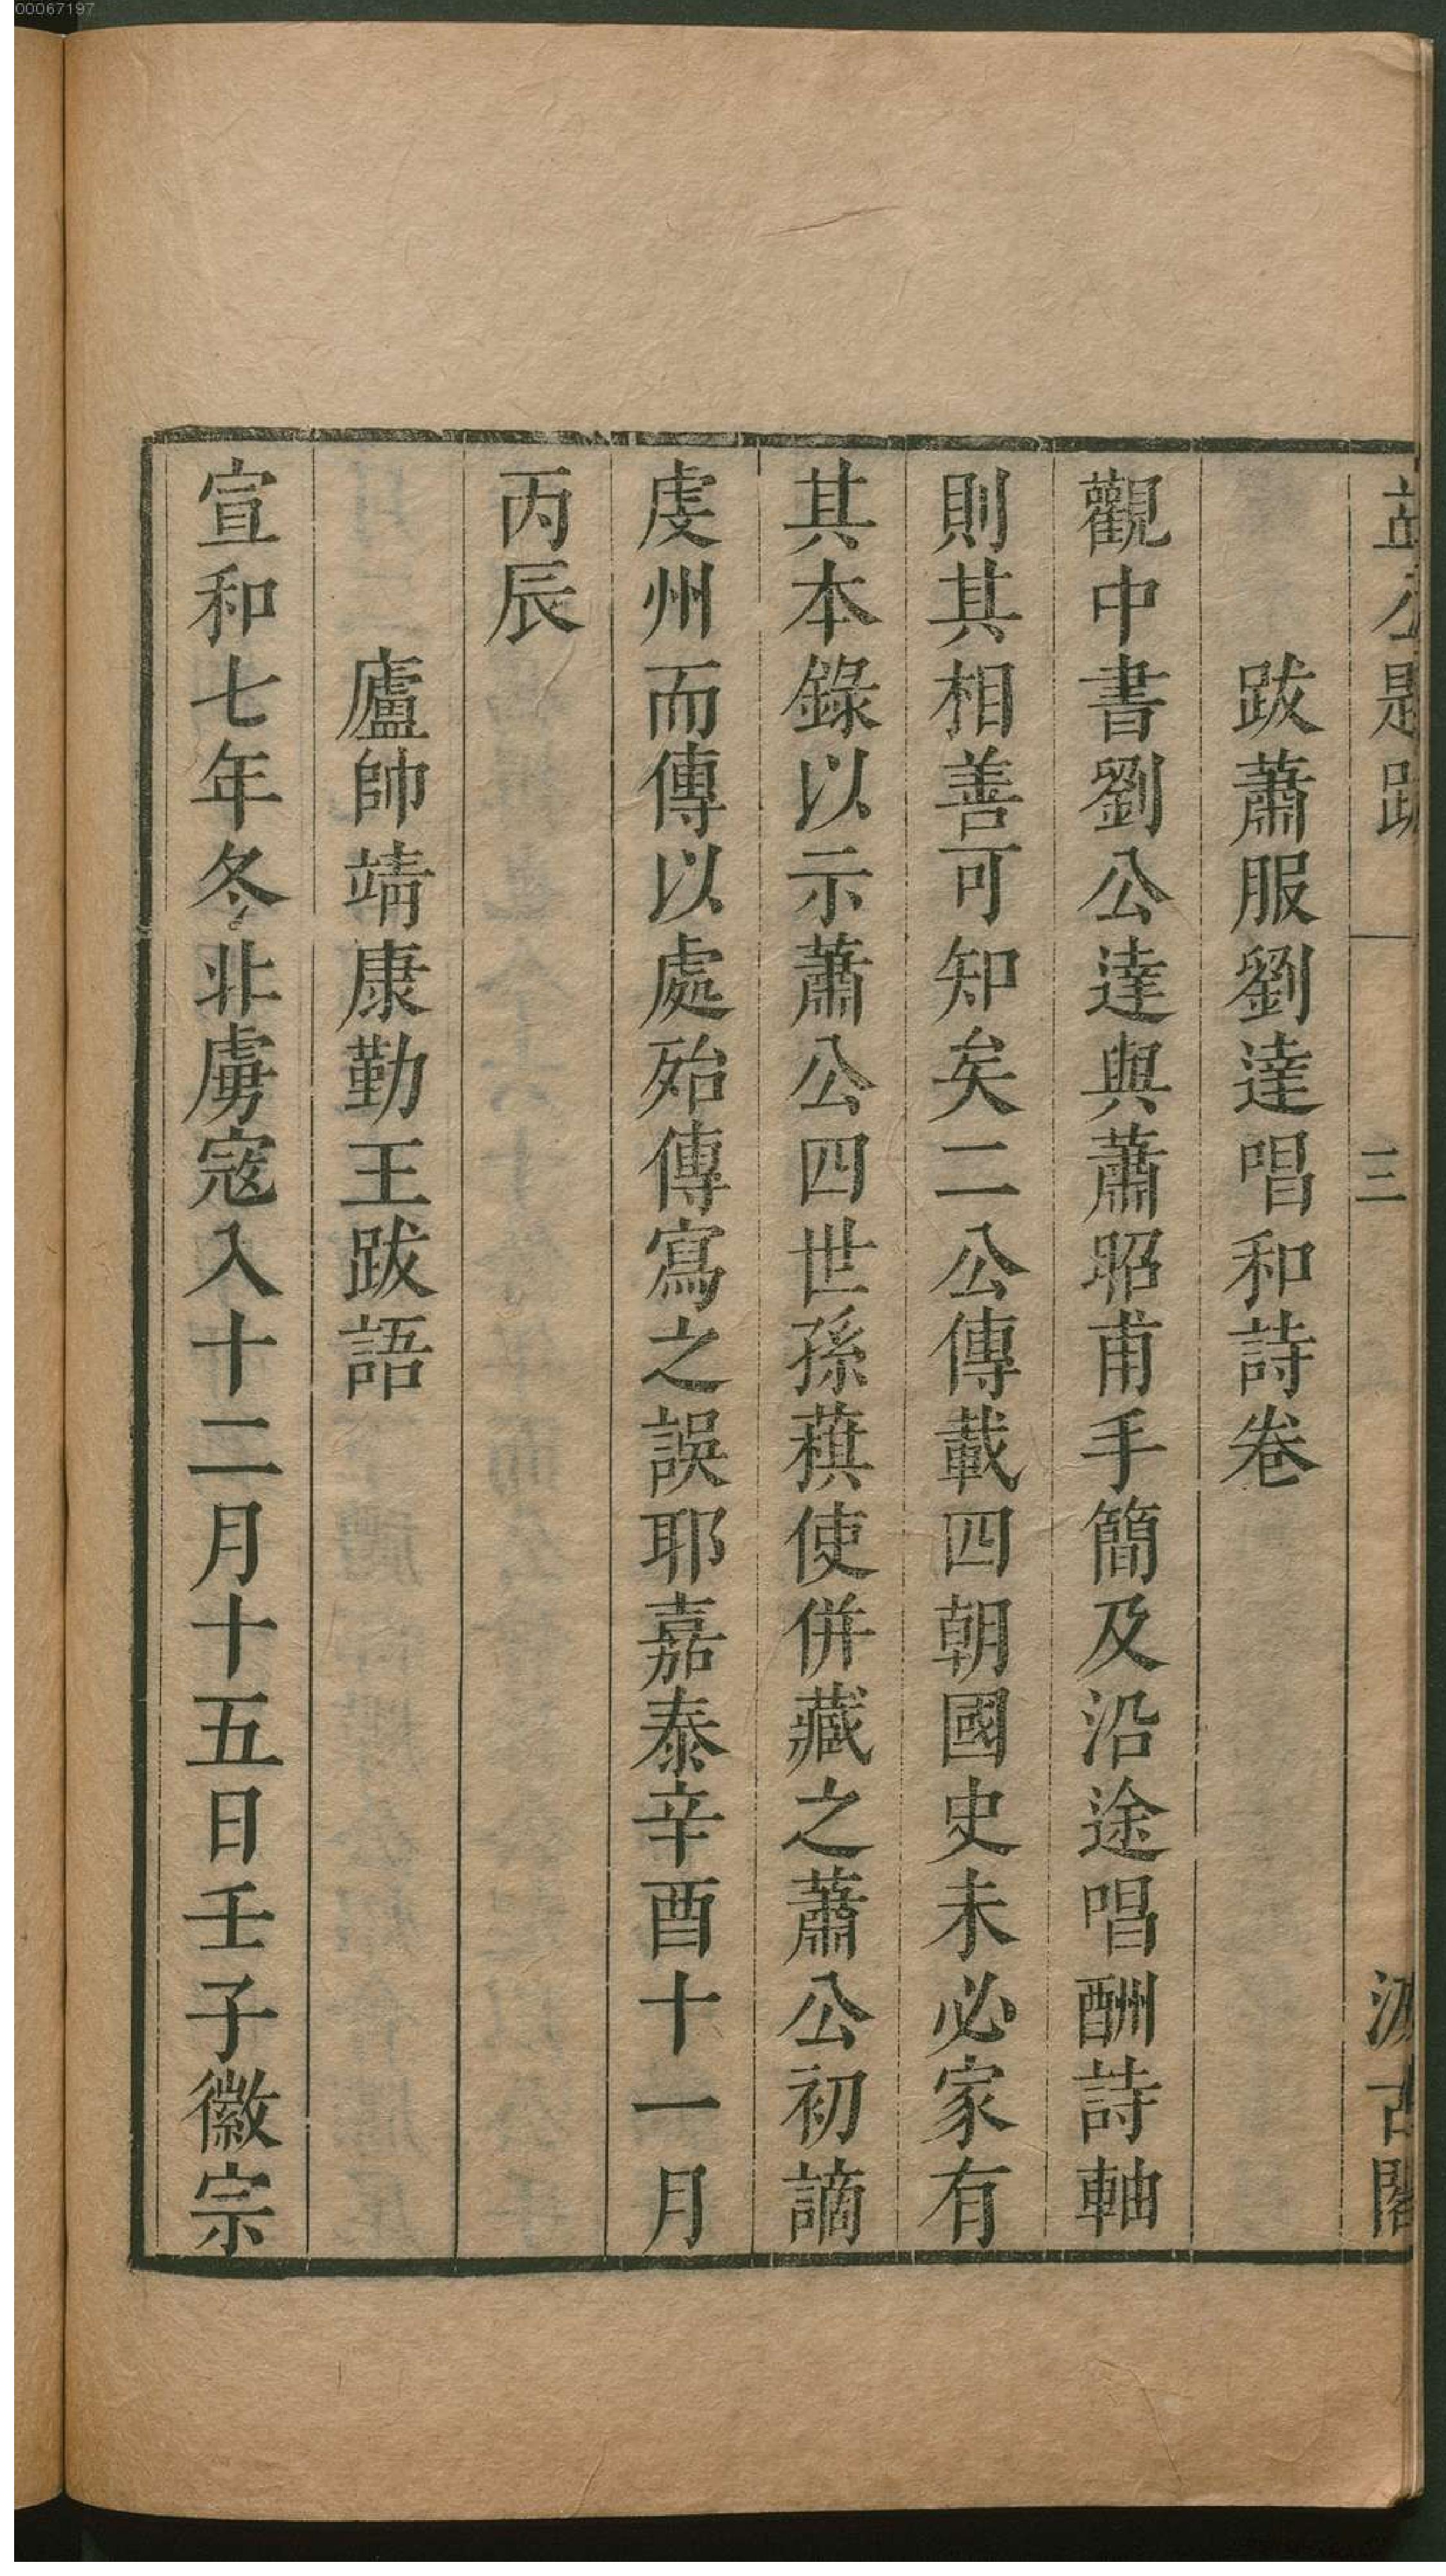 00067197
益公題跋 三 汲古閣
跋蕭服劉達唱和詩卷
觀中書劉公達與蕭昭甫手簡及沿途唱酬詩軸
則其相善可知矣二公傳載四朝國史未必家有
其本錄以示蕭公四世孫使併藏之蕭公初謫
虔州而傳以處殆傳寫之誤耶嘉泰辛酉十一月
丙辰
廬帥靖康勤王跋語
宣和七年冬北虜寇入十二月十五日壬子徽宗